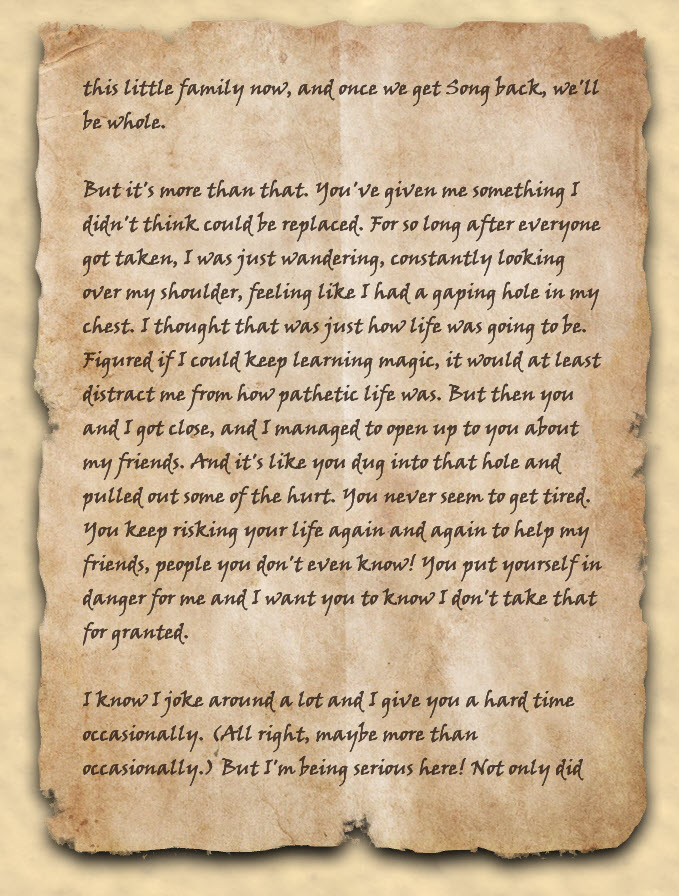 this little family now, and once we get Song back, we'll
be whole.
But it's more than that. You've given me something I
didn't think could be replaced. For so long after everyone
got taken, I was just wandering, constantly looking
over my shoulder, feeling like I had a gaping hole in my
chest. I thought that was just how life was going to be.
Figured if I could keep learning magic, it would at least
distract me from how pathetic life was. But then you
and I got close, and I managed to open up to you about
my friends. And it's like you dug into that hole and
pulled out some of the hurt. You never seem to get tired.
You keep risking your life again and again to help my
friends, people you don't even know! You put yourself in
danger for me and I want you to know I don't take that
for granted.
I know I joke around a lot and I give you a hard time
occasionally. (All right, maybe more than
occasionally.) But I'm being serious here! Not only did